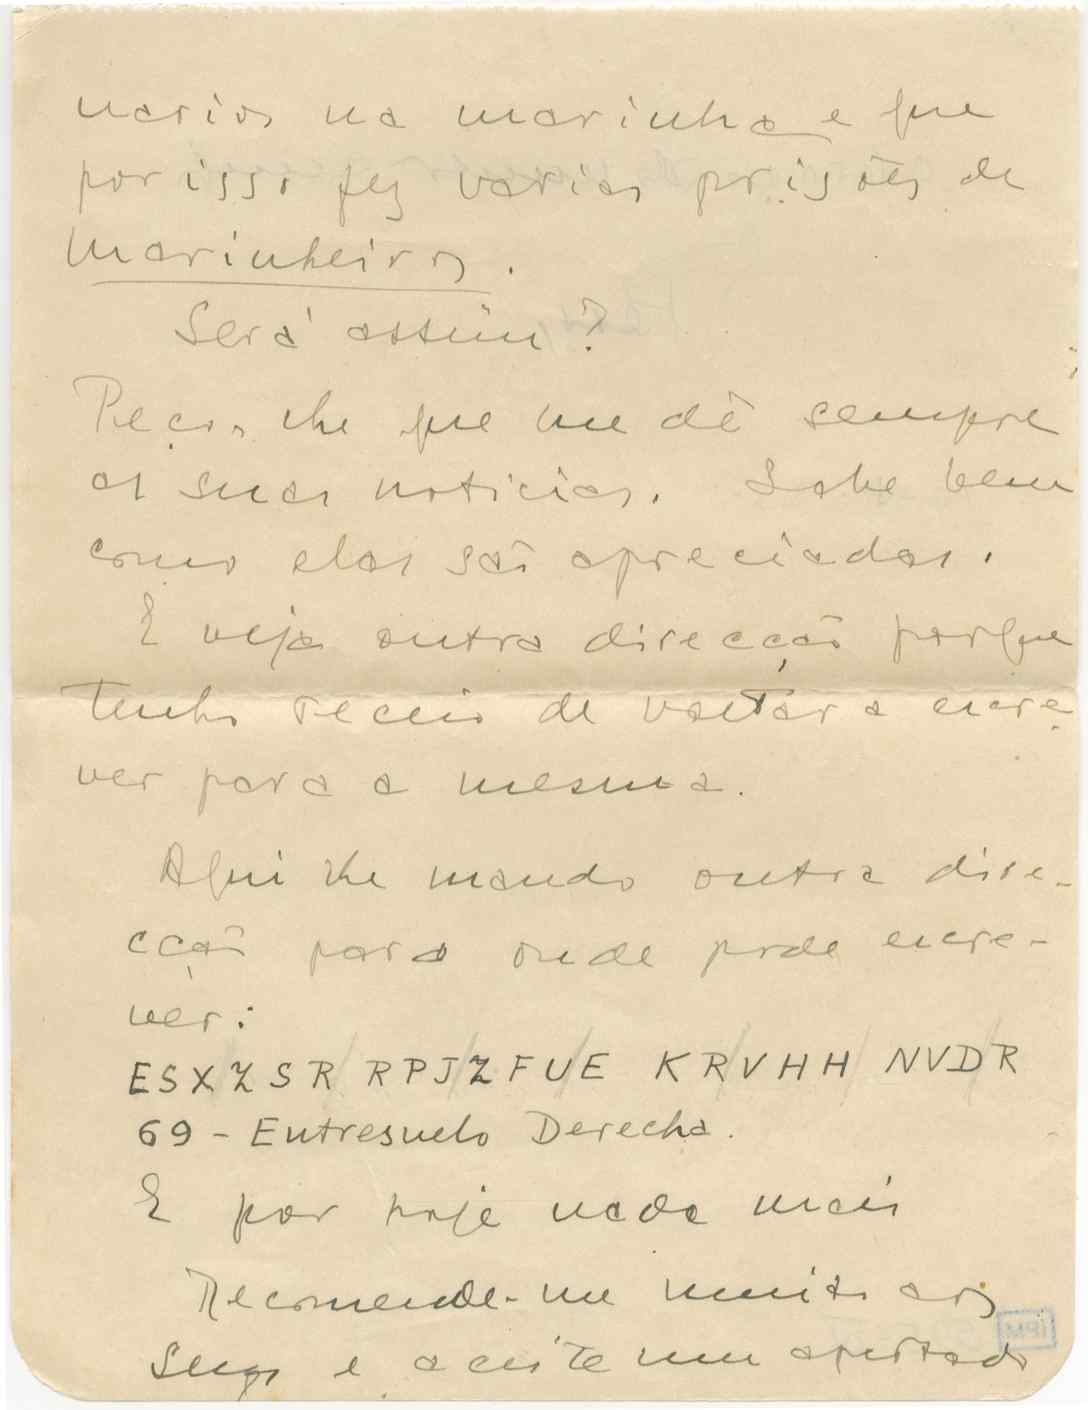 narios na marinha e que
por isso fez varias prisões de
marinheiros.
Será assim?
Peço-lhe que me dê sempre
as suas noticias. Sabe bem
como elas são apreciadas.
E veja outra direcção porque
tenho receio de voltar a escre
ver para a mesma.
Aqui lhe mando outra dire-
cção para onde pode escre-
ver:
ESXZSR/RPJ/ZFU/E KR/VHH/NVD/R
69 - Entresuelo Derecha.
E por hoje nada mais
Recomende-me muito aos
Seus e aceite um apertado
IPM